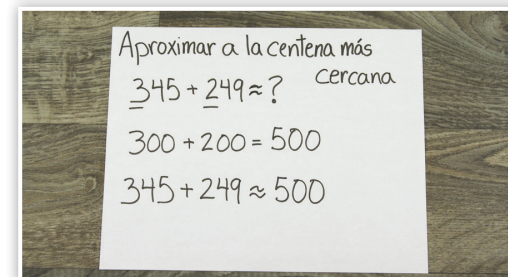 Aproximar a la centena más
cercana
345 + 249 ≈ ?
300 + 200 = 500
345 + 249 ≈ 500